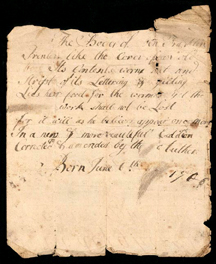 The Body of Franklin
Printer Like the Cover of an old
Its Contents worn out and
Stript of its Lettering & Gilding
Lies here food for the worms yet the
work shall not be Lost
for it will as he believ'd appear once more
In a new & more beautiful Edition
Corrected & amended By the Author
Born June 6th